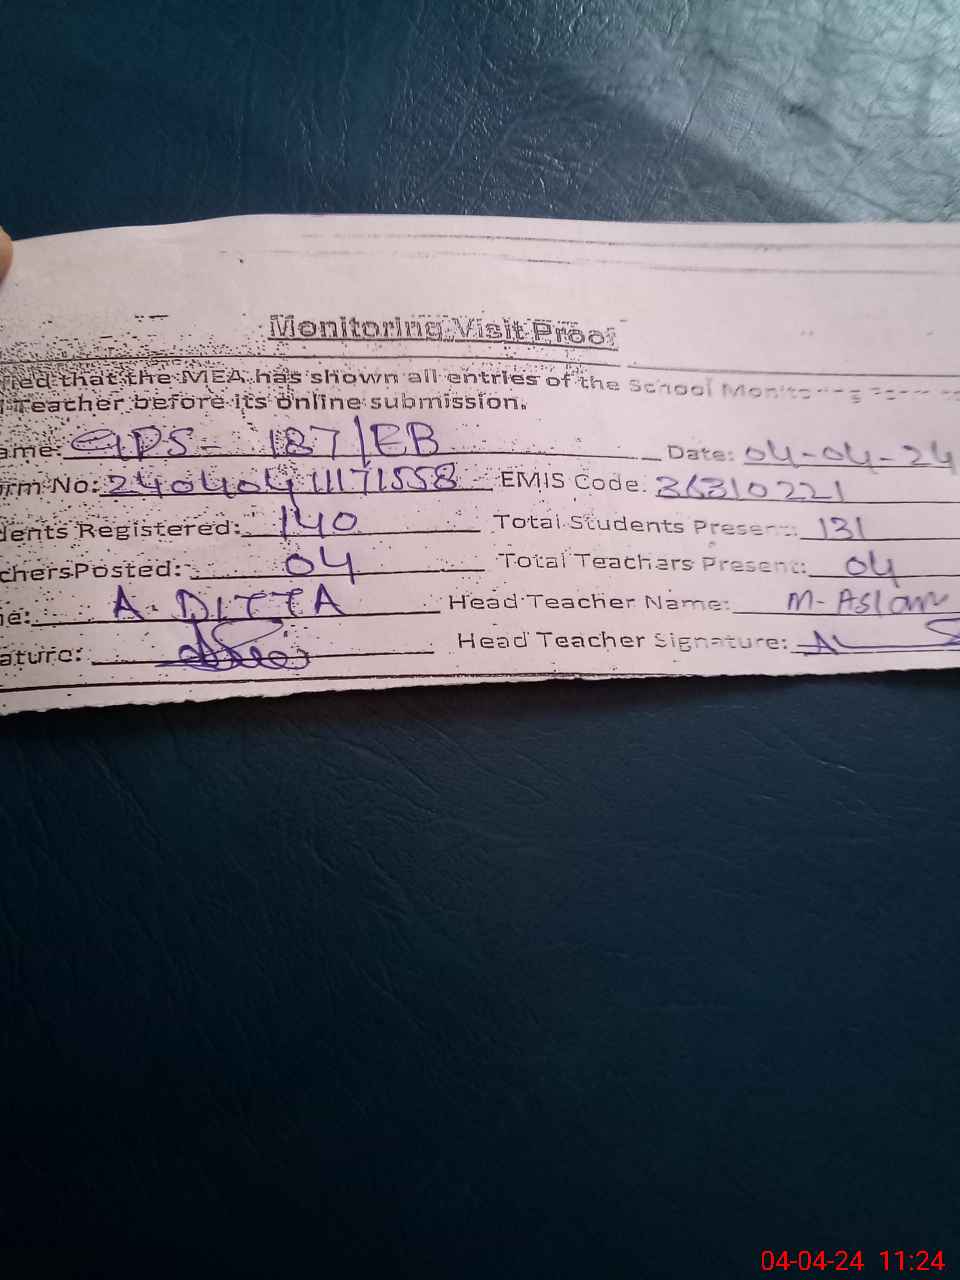 Monitoring Visit Proof
fied that the MEA has shown all entries of the School
Teacher before its online submission.
ame: GPS - 187/EB Date: 04-04-24
orm No: 24040411171558 EMIS Code: 36310221
dents Registered: 140 Total Students Present: 131
chers Posted: 04 Total Teachers Present: 04
ne: A. DITTA Head Teacher Name: M-Aslam
ature: Head Teacher Signature:
04-04-24 11:24